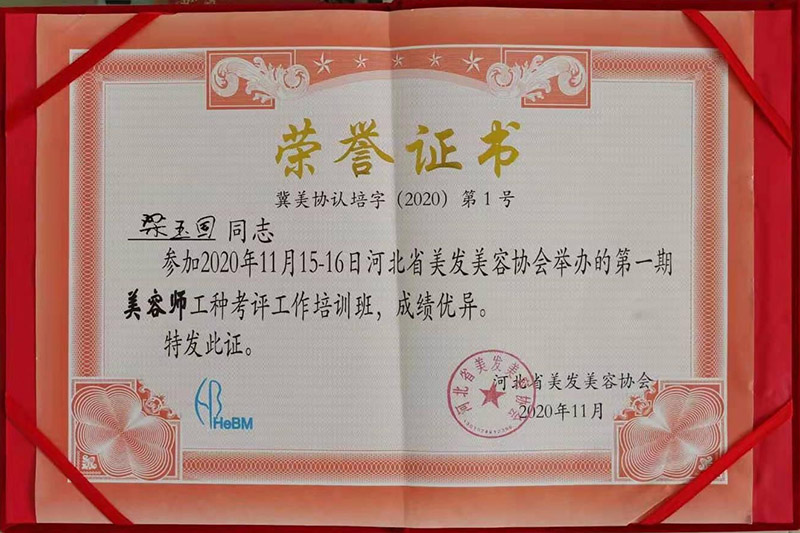 荣誉证书
冀美协认培字（2020）第1号
梁玉国 同志
参加2020年11月15-16日河北省美发美容协会举办的第一期
美容师工种考评工作培训班，成绩优异。
特发此证。
HeBM
河北省美发美容协会
河北省美发美容协会
2020年11月